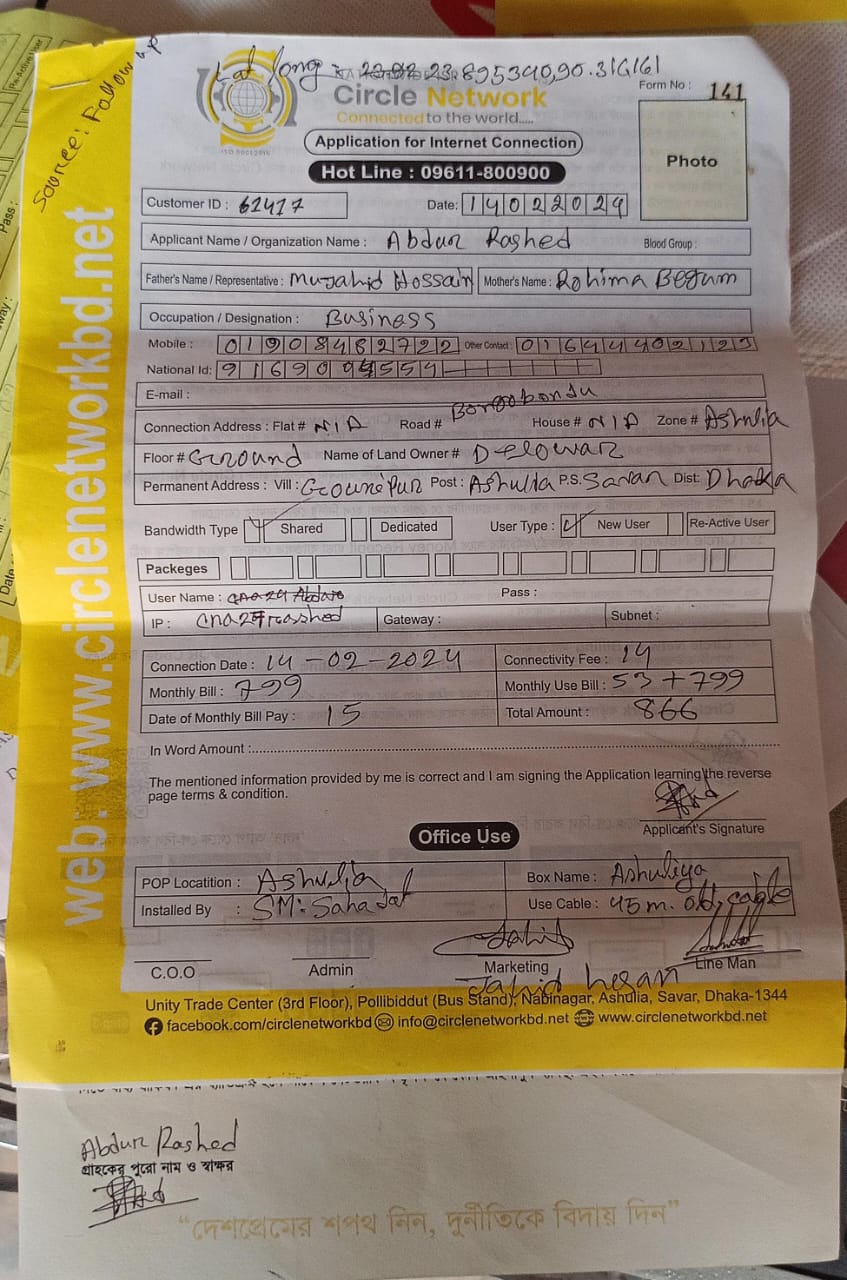 Source: Follow up
Lat long : 23.895340,90.316161
Circle Network
Connected to the world.....
ISO 9001:2015
Form No : 141
Application for Internet Connection
Hot Line : 09611-800900
Photo
Customer ID : 62417 Date: 14022024
Applicant Name / Organization Name : Abdur Rashed Blood Group :
Father's Name / Representative : Mujahid Hossain Mother's Name : Rohima Begum
Occupation / Designation : Business
Mobile : 01908482722 Other Contact : 01644402123
National Id: 9169004554
E-mail :
Connection Address : Flat # N/A Road # Borgobondu House # N/A Zone # Ashulia
Floor # Ground Name of Land Owner # Delowar
Permanent Address : Vill : Gouripur Post : Ashulia P.S. Savar Dist: Dhaka
Bandwidth Type Shared Dedicated User Type : New User Re-Active User
Packeges
User Name : Pass :
IP : cna24rashed Gateway : Subnet :
Connection Date : 14-02-2024 Connectivity Fee : 14
Monthly Bill : 799 Monthly Use Bill : 53+799
Date of Monthly Bill Pay : 15 Total Amount : 866
In Word Amount :
The mentioned information provided by me is correct and I am signing the Application learning the reverse
page terms & condition.
Applicant's Signature
Office Use
POP Locatition : Ashulia Box Name : Ashuliya
Installed By : SM: Sahadat Use Cable : 45 m. old, cable
C.O.O Admin Marketing Line Man
Jahid hesan
Unity Trade Center (3rd Floor), Pollibiddut (Bus Stand), Nabinagar, Ashulia, Savar, Dhaka-1344
facebook.com/circlenetworkbd info@circlenetworkbd.net www.circlenetworkbd.net
web: www.circlenetworkbd.net
Abdur Rashed
গ্রাহকের পুরো নাম ও স্বাক্ষর
“দেশপ্রেমের শপথ নিন, দুর্নীতিকে বিদায় দিন”